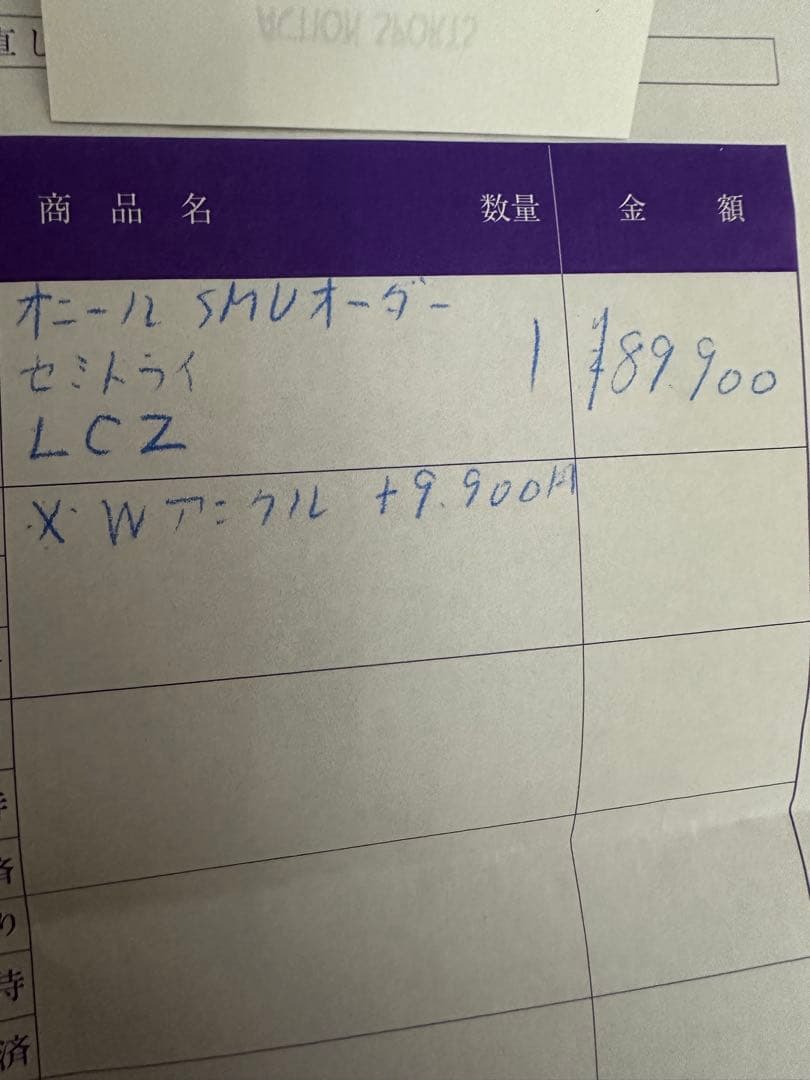 ACTION SPORTS
直し
商品名 数量 金額
オニール SMUオーダー
セミドライ 1 ¥89.900
LCZ
X・Wアンクル +9.900円
済
り
待
済